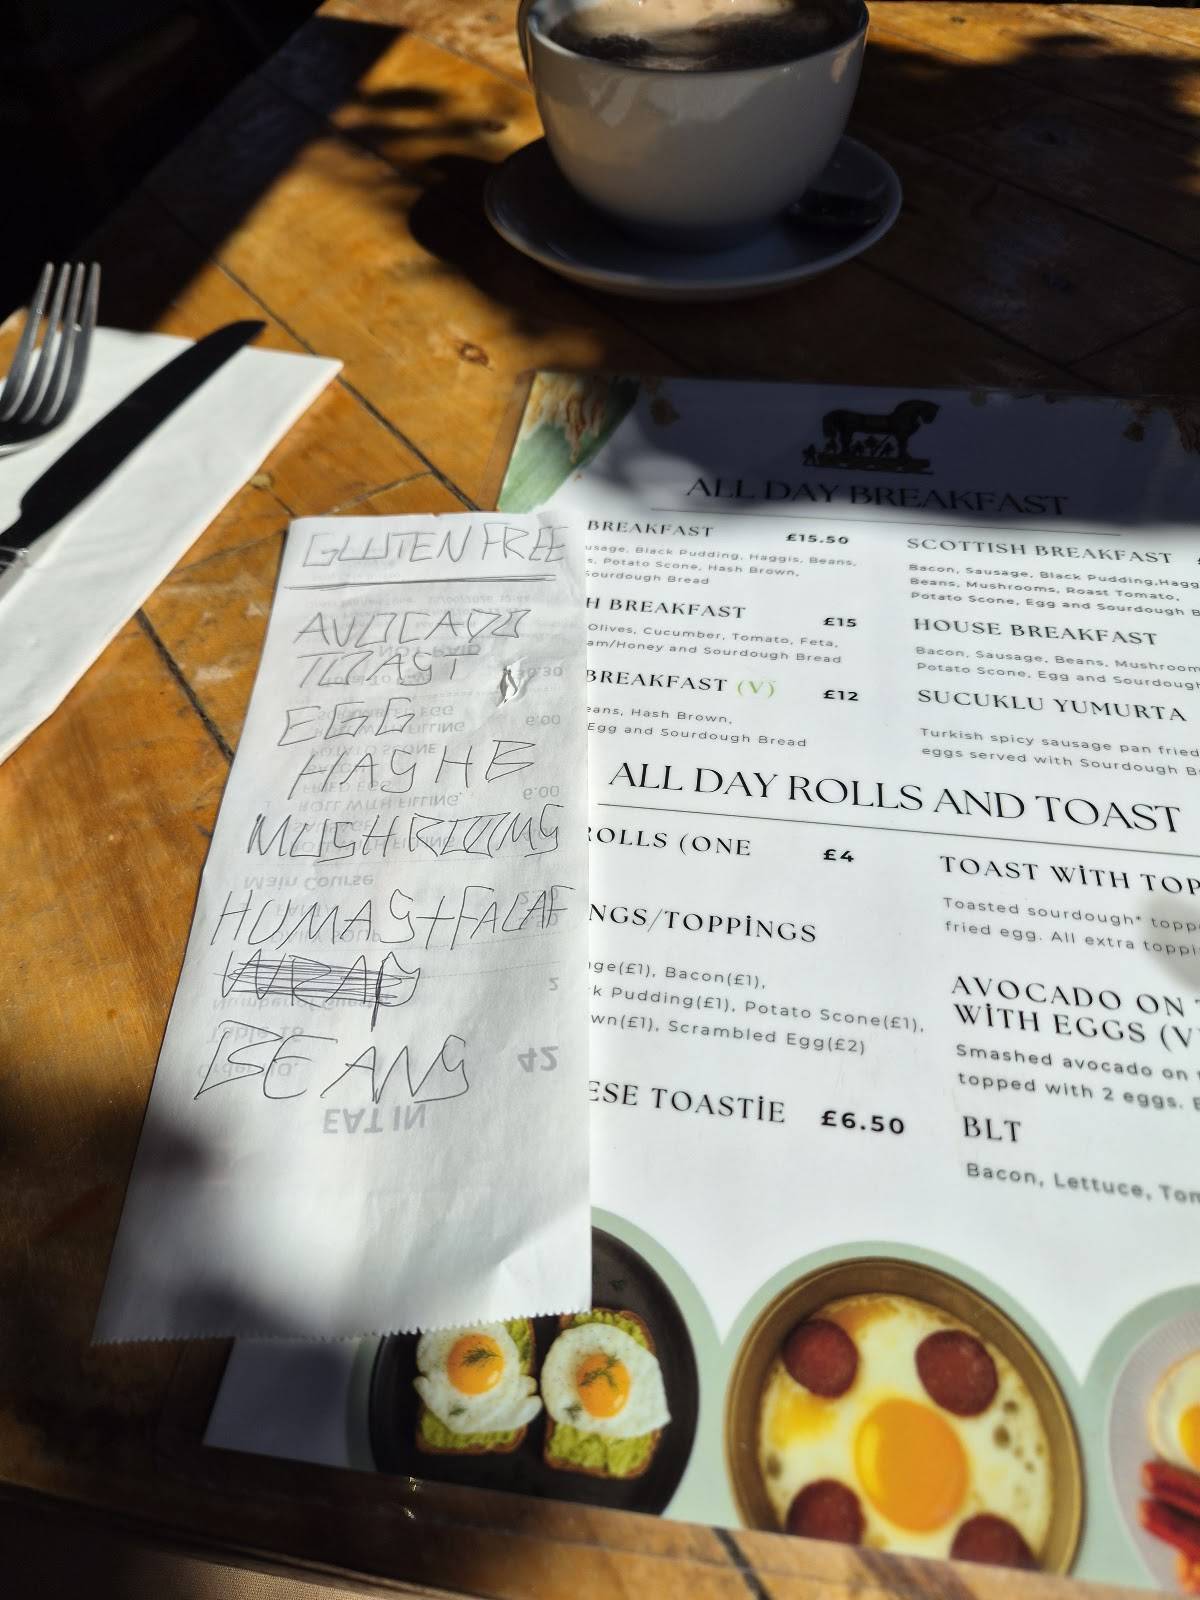 GLUTEN FREE
AVOCADO
TOAST
EGG
HASH B
MUSHROOMS
HUMAS+FALAF
WRAP
BEANS
ALL DAY BREAKFAST
BREAKFAST £15.50
usage, Black Pudding, Haggis, Beans,
s, Potato Scone, Hash Brown,
Sourdough Bread
H BREAKFAST £15
Olives, Cucumber, Tomato, Feta,
am/Honey and Sourdough Bread
BREAKFAST (V) £12
eans, Hash Brown,
Egg and Sourdough Bread
SCOTTISH BREAKFAST
Bacon, Sausage, Black Pudding,Hagg
Beans, Mushrooms, Roast Tomato,
Potato Scone, Egg and Sourdough B
HOUSE BREAKFAST
Bacon, Sausage, Beans, Mushroom
Potato Scone, Egg and Sourdough
SUCUKLU YUMURTA
Turkish spicy sausage pan fried
eggs served with Sourdough B
ALL DAY ROLLS AND TOAST
ROLLS (ONE £4
NGS/TOPPİNGS
age(£1), Bacon(£1),
k Pudding(£1), Potato Scone(£1),
wn(£1), Scrambled Egg(£2)
ESE TOASTİE £6.50
TOAST WİTH TOP
Toasted sourdough* topp
fried egg. All extra toppi
AVOCADO ON
WİTH EGGS (V
Smashed avocado on
topped with 2 eggs.
BLT
Bacon, Lettuce, Tom
EAT IN
42
Table 16
Number of Guest 2
Main Course
6.00
ROLL WITH FILLING,
FRIED EGG
POTATO SCONE
6.00
SCRAMBLED EGG
NOT PAID